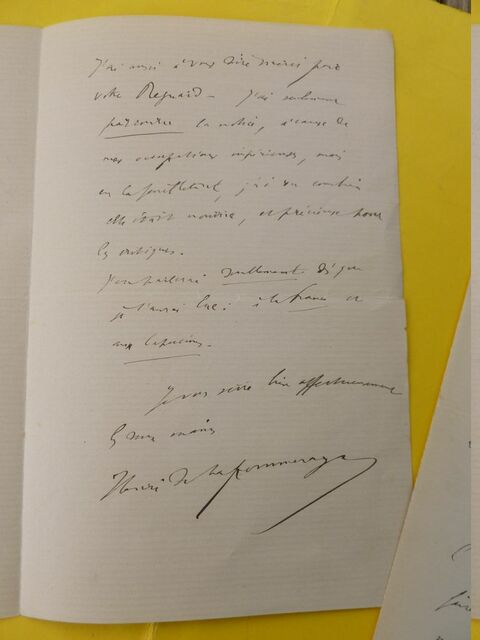 J'ai aussi à vous dire merci pour
votre Regnard — J'ai seulement
parcouru la notice, à cause de
mes occupations impérieuses, mais
en la feuilletant, j'ai vu combien
elle était nourrie, et précieuse pour
les critiques.
J'en parlerai dès que
je l'aurai lue : à la france et
aux Capucines.
Je vous serre bien affectueusement
les deux mains
Henri de Lapommeraye